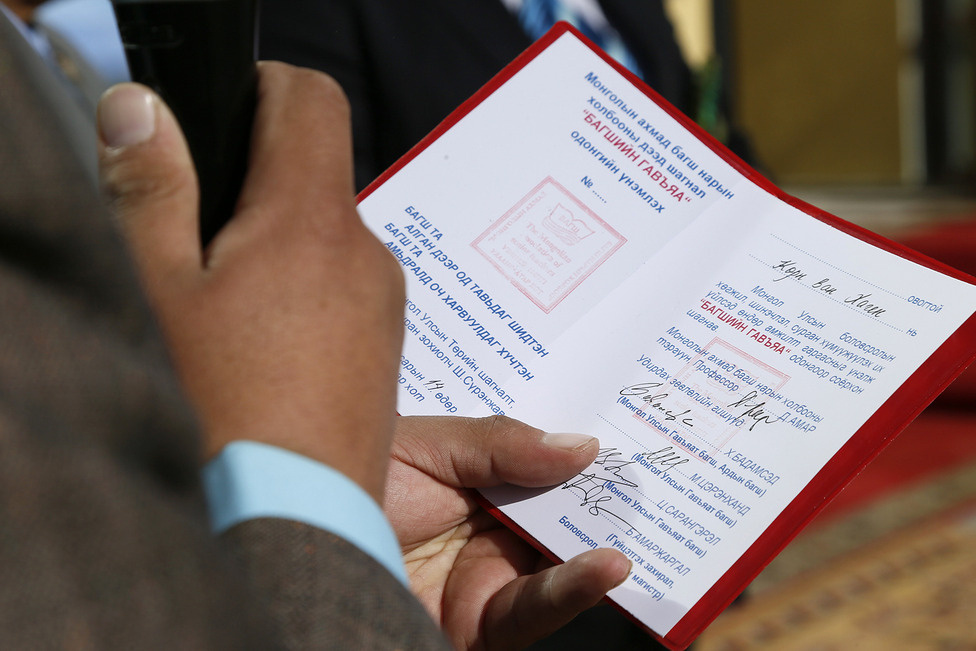 Монголын ахмад багш нарын
холбооны дээд шагнал
"БАГШИЙН ГАВЪЯА"
одонгийн үнэмлэх
№ ......
БАГШ ТА
АЛГАН ДЭЭР ОД ТАВЬДАГ ШИДТЭН
БАГШ ТА
АМЬДРАЛД ОЧ ХАРВУУЛДАГ ХҮЧТЭН
Улсын Төрийн шагналт,
зохиолч Ш.Сүрэнжав
сарын 14 өдөр
хот
овогтой
нь
Монгол Улсын боловсролын
хөгжил, шинэчлэл, сурган хүмүүжүүлэх их
үйлсэд өндөр амжилт гаргасныг үнэлж
"БАГШИЙН ГАВЪЯА" одонгоор содрхон
шагнав.
Монголын ахмад багш нарын холбооны
тэргүүн, профессор Д.АМАР
Удирдах зөвлөлийн гишүүд:
Х.БАДАМСЭД
(Монгол Улсын Гавъяат багш, Ардын багш)
М.ЦЭРЭНХАНД
(Монгол Улсын Гавъяат багш)
Ц.САРАНГЭРЭЛ
(Монгол Улсын Гавъяат багш)
Б.АМАРЖАРГАЛ
(Гүйцэтгэх захирал,
Боловсрол магистр)